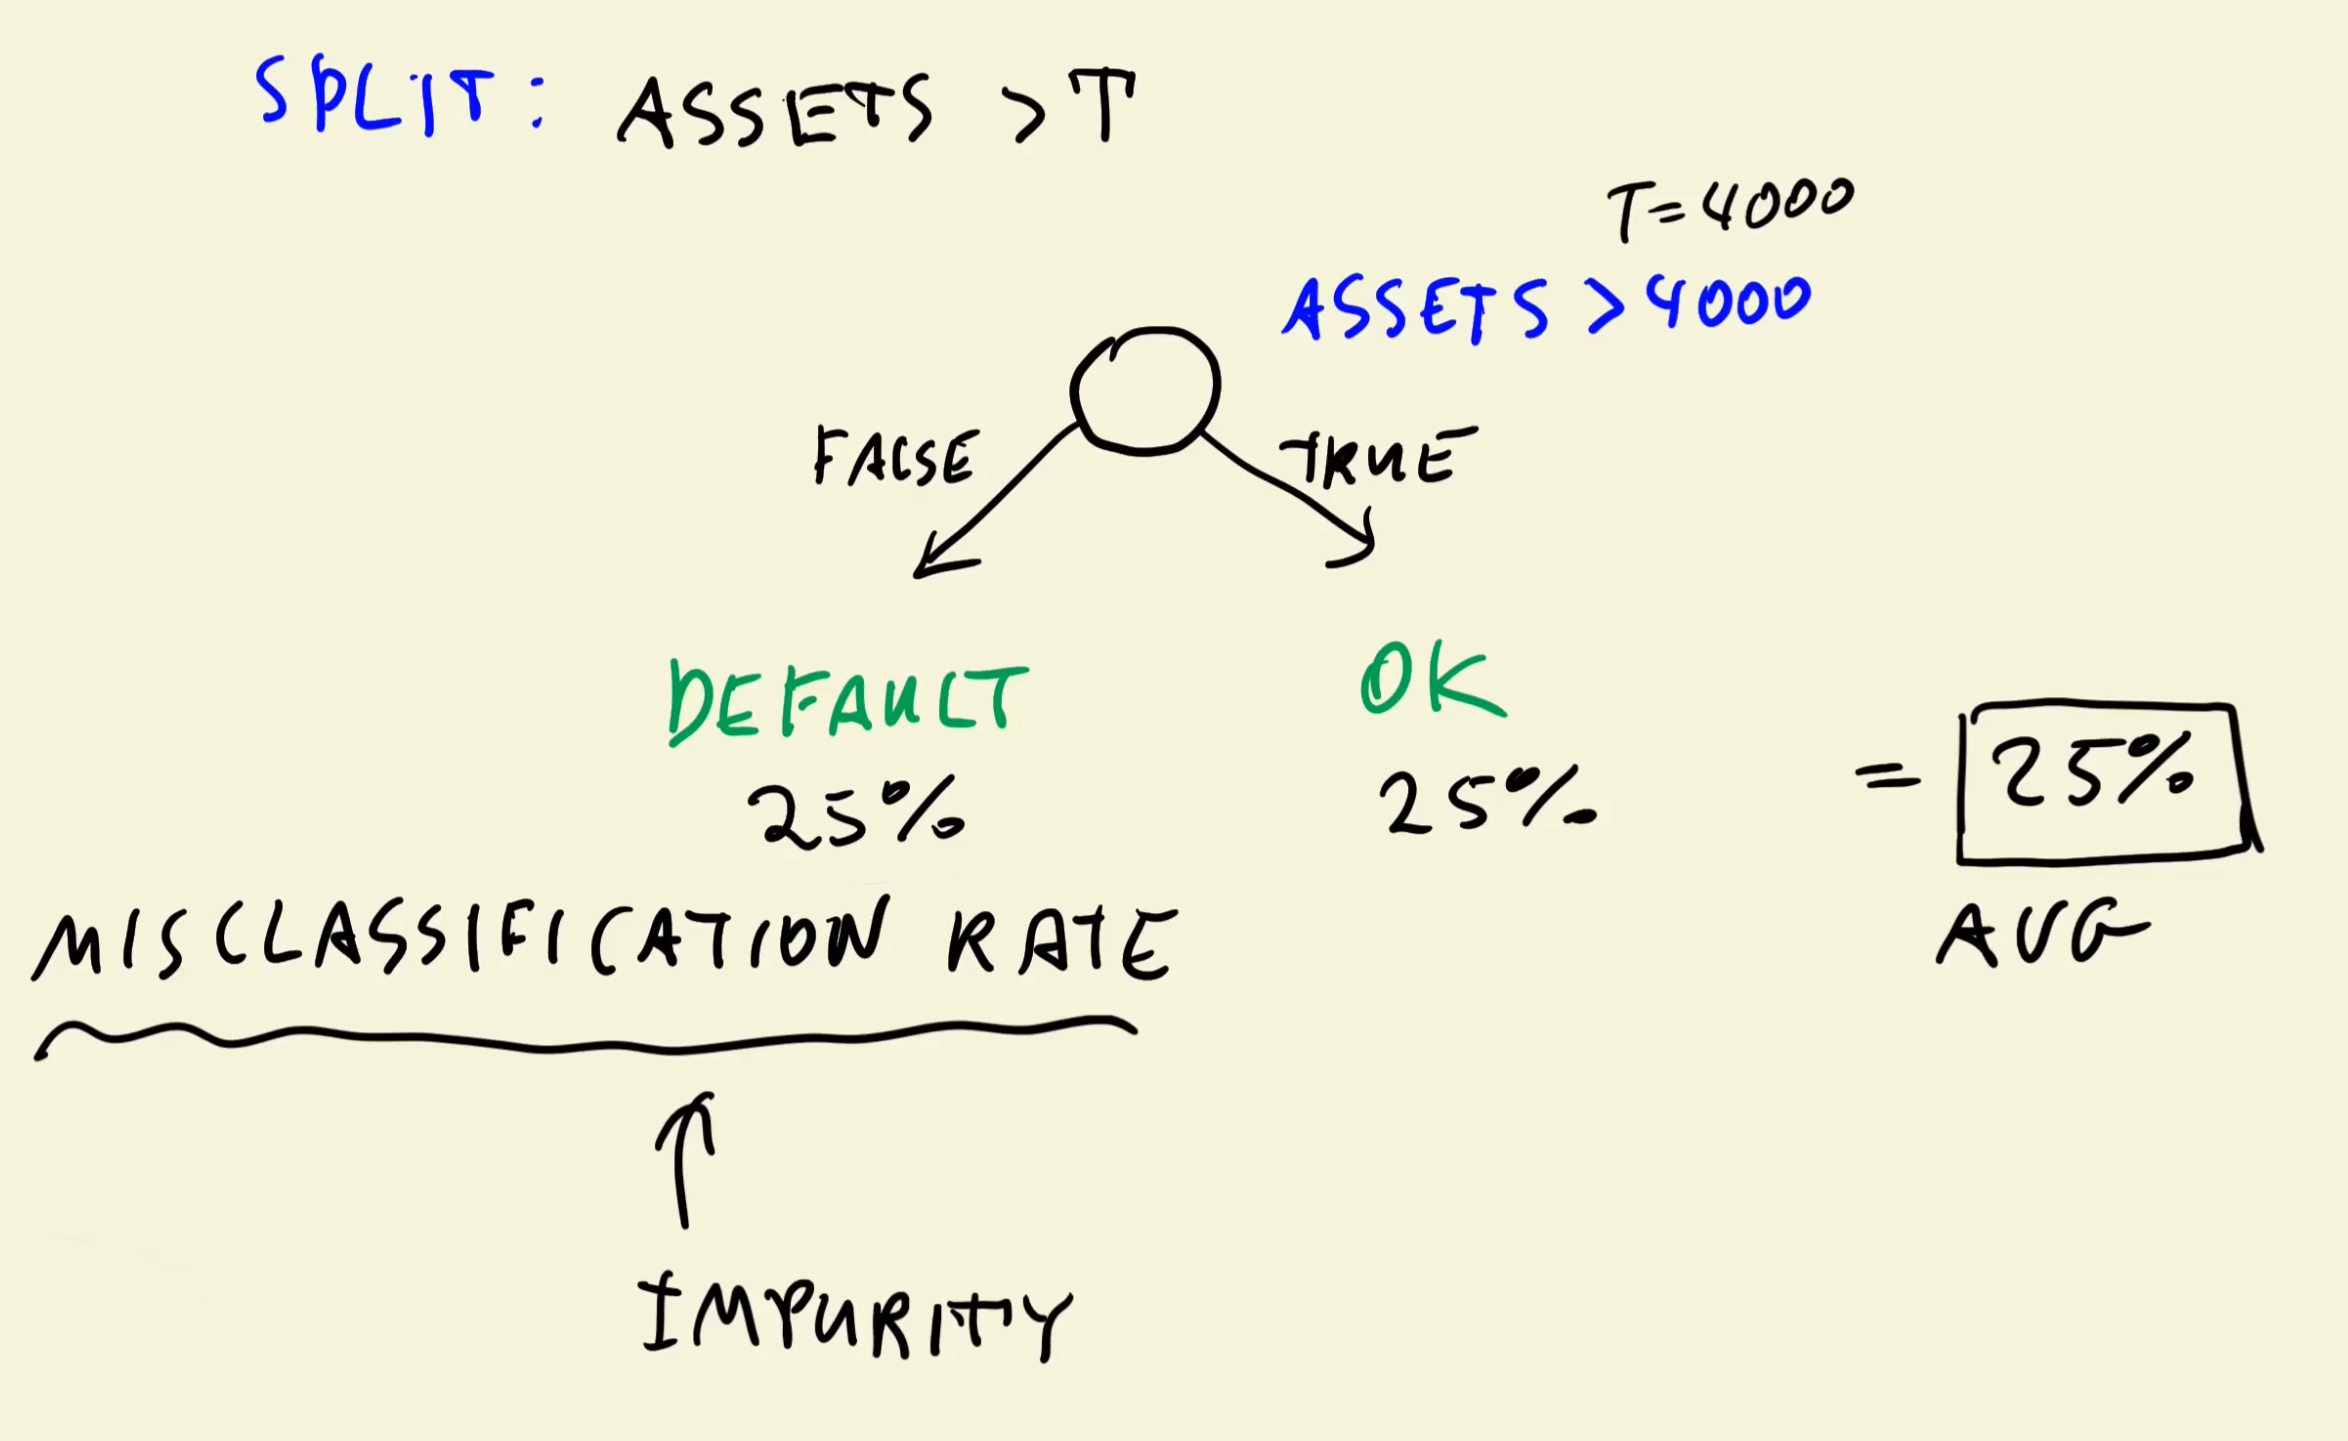 SPLIT: ASSETS > T
T = 4000
ASSETS > 4000
FALSE TRUE
DEFAULT OK
25% 25% = 25%
MISCLASSIFICATION RATE AVG
IMPURITY